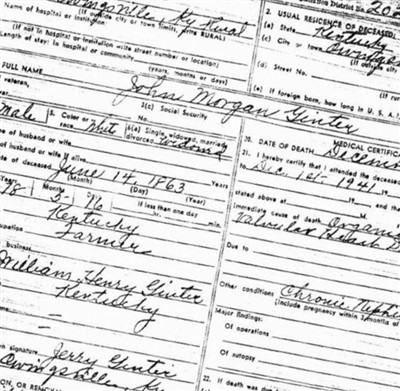 Owingsville, Ky Rural
(If outside city or town limits, write RURAL)
Name of hospital or institution
(If not in hospital or institution write street number or location)
Length of stay: In hospital or community
(years, months or days)
FULL NAME
John Morgan Ginter
veteran,
3(c) Social Security
Male
5. Color or race White
6(a) Single, widowed, married, divorced widowed
of husband or wife
of husband or wife if alive Years
of deceased June 14, 1863
(Month) (Day) (Year)
Years Months Days If less than one day
78 5 min
Kentucky
Farmer
business
William Henry Ginter
Kentucky
own signature Jerry Ginter
Owingsville, Ky
ON, OR REMOVAL
District No. 20
2. USUAL RESIDENCE OF DECEASED
(a) State Kentucky
(c) City or town Owingsv
(If outside city
(d) Street No.
(If rur
(e) If foreign born, how long in U. S. A.?
MEDICAL CERTIFIC
20. DATE OF DEATH Decem
21. I hereby certify that I attended the deceased
to Dec. 1st, 1941, 19
stated above at
Immediate cause of death Organic
Valvular Heart D
Due to
Other conditions Chronic Nephri
(Include pregnancy within 3 months of
Major findings:
Of operations
Of autopsy
22. If death was du